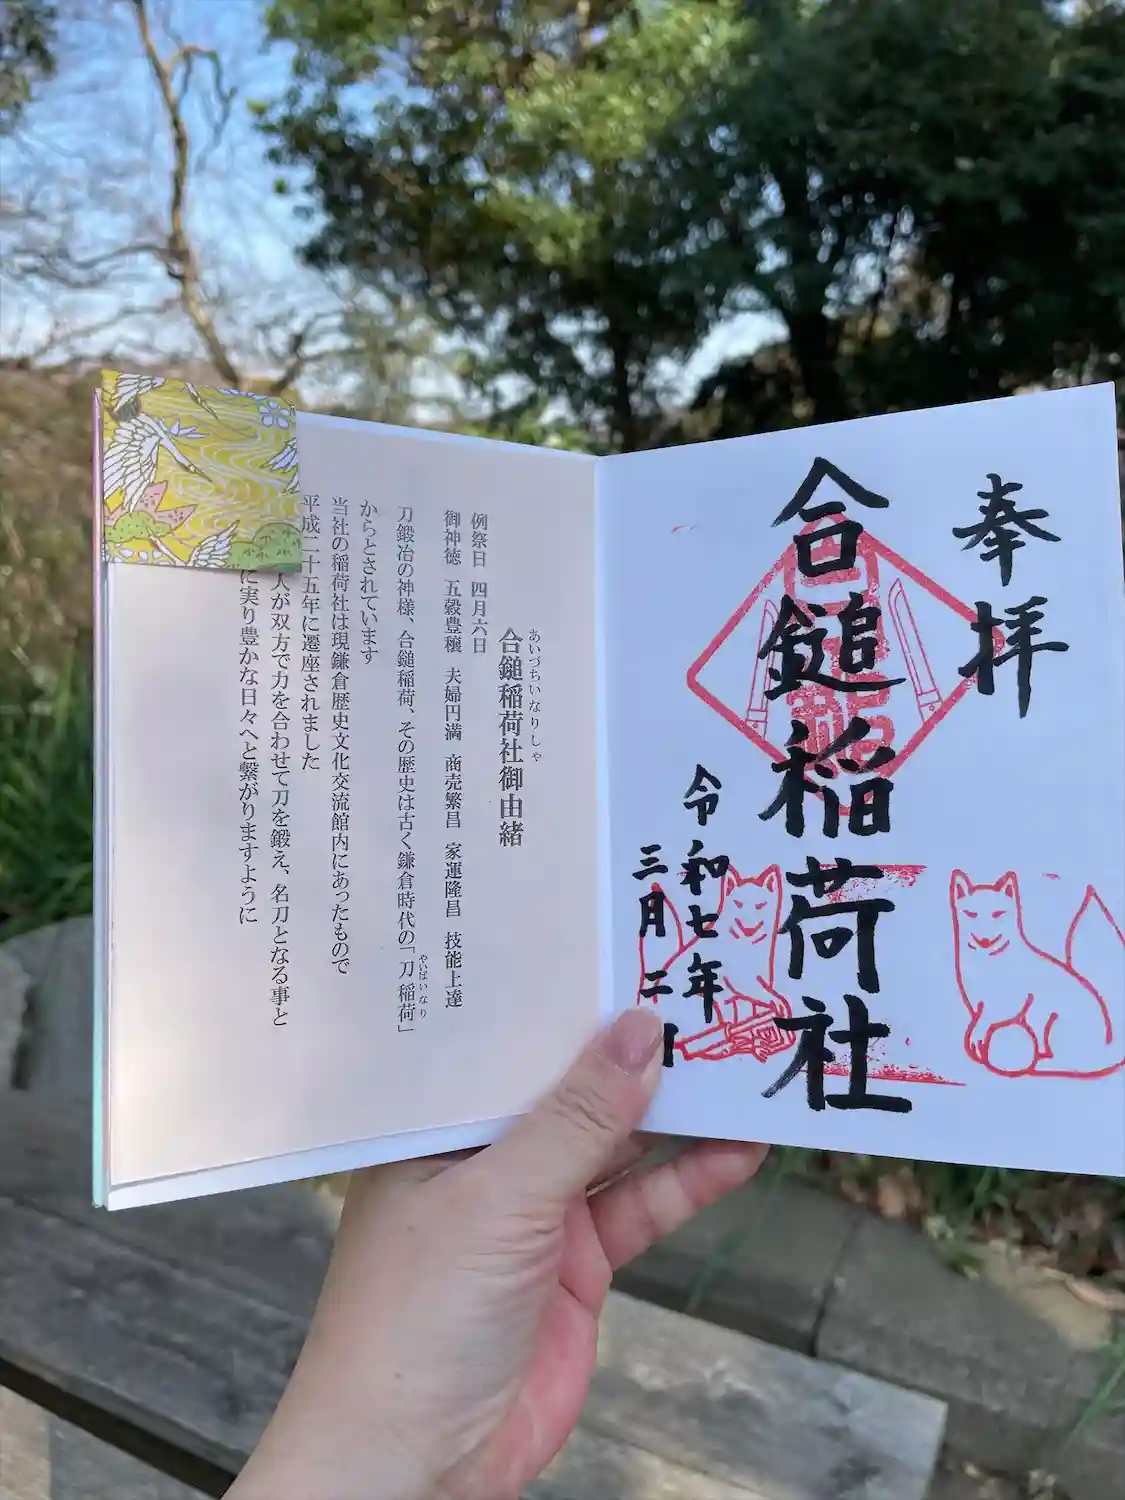 奉拝
合鎚稲荷社
令和七年
三月二
合鎚稲荷社御由緒
あいづちいなりしゃ
例祭日 四月六日
御神徳 五穀豊穣 夫婦円満 商売繁昌 家運隆昌 技能上達
刀鍛冶の神様、合鎚稲荷、その歴史は古く鎌倉時代の「刀稲荷」
やいばいなり
からとされています
当社の稲荷社は現鎌倉歴史文化交流館内にあったもので
平成二十五年に遷座されました
人が双方で力を合わせて刀を鍛え、名刀となる事と
に実り豊かな日々へと繋がりますように